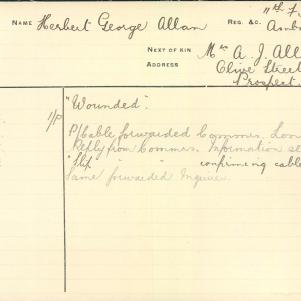 NAME Herbert George Allan
REG. &C. 11th F
Amb
NEXT OF KIN Mrs A. J. All
ADDRESS Olive Street
Prospect.
"Wounded".
P/Cable forwarded Commrs. Lon
Reply from Commrs. Information se
"Slip" " " confirming cable
Same forwarded Inquirer.